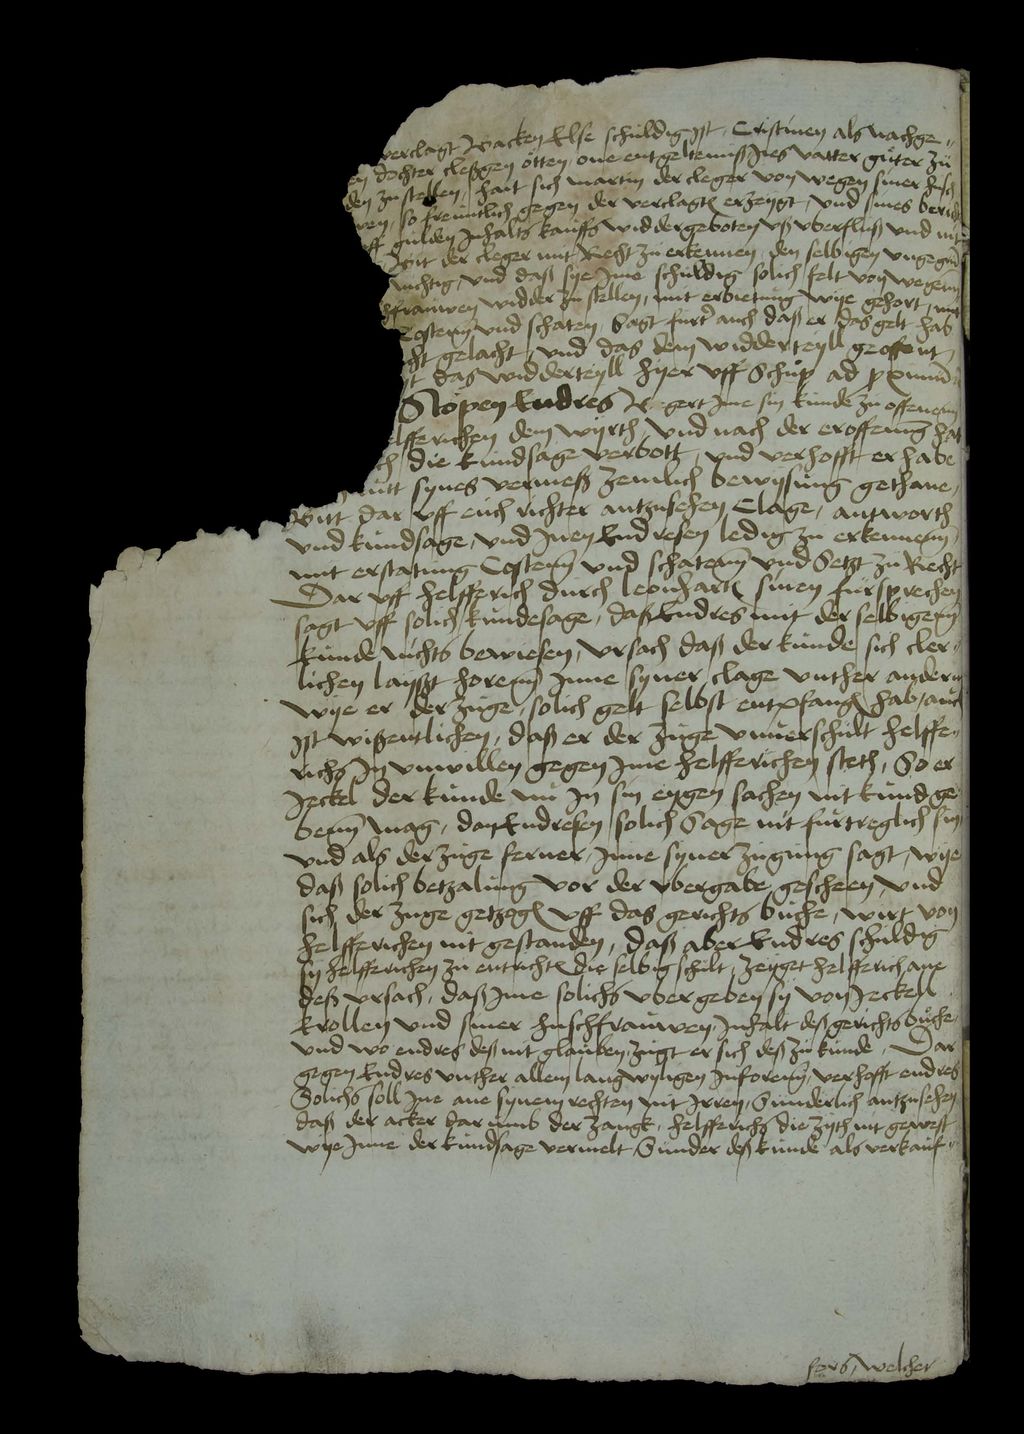 verclagt Wacken Else schuldig ist, Cristinen als nachge-
en dochter cleßgen otten, one entgeltenniß Ires vatter guter zu
den zu stellen, hait sich martin der cleger von wegen siner husch
wen, so freuntlich gegen der verclagt erzeygt, und sines
uff gulden Inhalts kauffs widdergeboten uß uberfluß und nit
Bit der cleger mit Recht zu erkennen, den selbigen
nichtig, und daß sye Ime schuldig solich felt von wegen
hffrauwen widder zu stellen, mit erbietung wije gehort, mit
Costenn und schaten, Sagt furter auch daß er das gelt hab
icht gelacht, und das dem widderteyll geoffent
das widderteyll hyer uff Schup ad proximum
Slopen Endres Begert Ime sin kunde zu offenenn
elfferichen dem wyrth, und nach der eroffenung hat
ch die kundsage verbott, und verhofft er habe
mitt synes vermeß zemlich bewysung gethane,
Bitt dar uff euch richter antzusehen Clage, antworth
und kundsage, und Inen Endresen ledig zu erkennenn
mit erstatung Costenn und schatenn und Setzt zu Recht
Dar uff helfferich durch leonhart sinen fursprechen
sagt uff solich kundesage, daß Endres mit der selbigenn
kunde nichts bewiesen, ursach daß der kunde sich cler-
lichen layßt horenn Inne syner clage unther andern
wije er der zuge, solich gelt selbst entpfang hab, auch
ist wißentlichen, daß er der zuge unverschult helffe-
richs In unwillen gegen Ime helfferichen steth, So er
Jeckel der kunde nu In sin eygen sachen nit kund ge-
benn mag, dan Endresen solich Sage nit furtreglich sin
und als der zuge ferner, Inne syner zugung sagt, wije
daß solich betzalung vor der ubergabe gescheen und
sich der zuge getzogt uff das gerichts buche, wirt von
helfferichen nit gestanden, daß aber Endres schuldig
sy helfferichen zu entricht die selbig schilt, zeyget helfferich ane
deß ursach, daß Ime solichs ubergeben sy von Jeckell
krollen und siner huschfrauwen, Inhalt deß gerichts buche,
und wo endres deß nit glauben, zugt er sich deß zu kunde, Dar
gegen Endres unther allem langwyrigen Inforenn, verhofft endres
Solichs soll Ine ane synem rechten nit Irren, Sunderlich antzusehen
daß der acker dar umb der zangk, helfferichs die zyth nit gewest
wije Inne der kundsage vermelt, Sunder deß kunde als verkauf-
fers, welcher